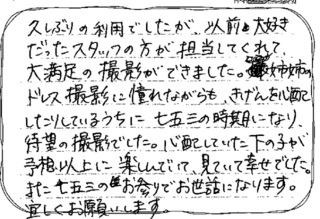 久しぶりの利用でしたが、以前も大好き
だったスタッフの方が担当してくれて、
大満足の撮影ができました。姉の
ドレス撮影に憧れながらも、きげんを心配
したりしているうちに七五三の時期になり、
待望の撮影でした。心配していた下の子が
予想以上に楽しんでいて、見ていて幸せでした。
また七五三のお参りでお世話になります。
宜しくお願いします。